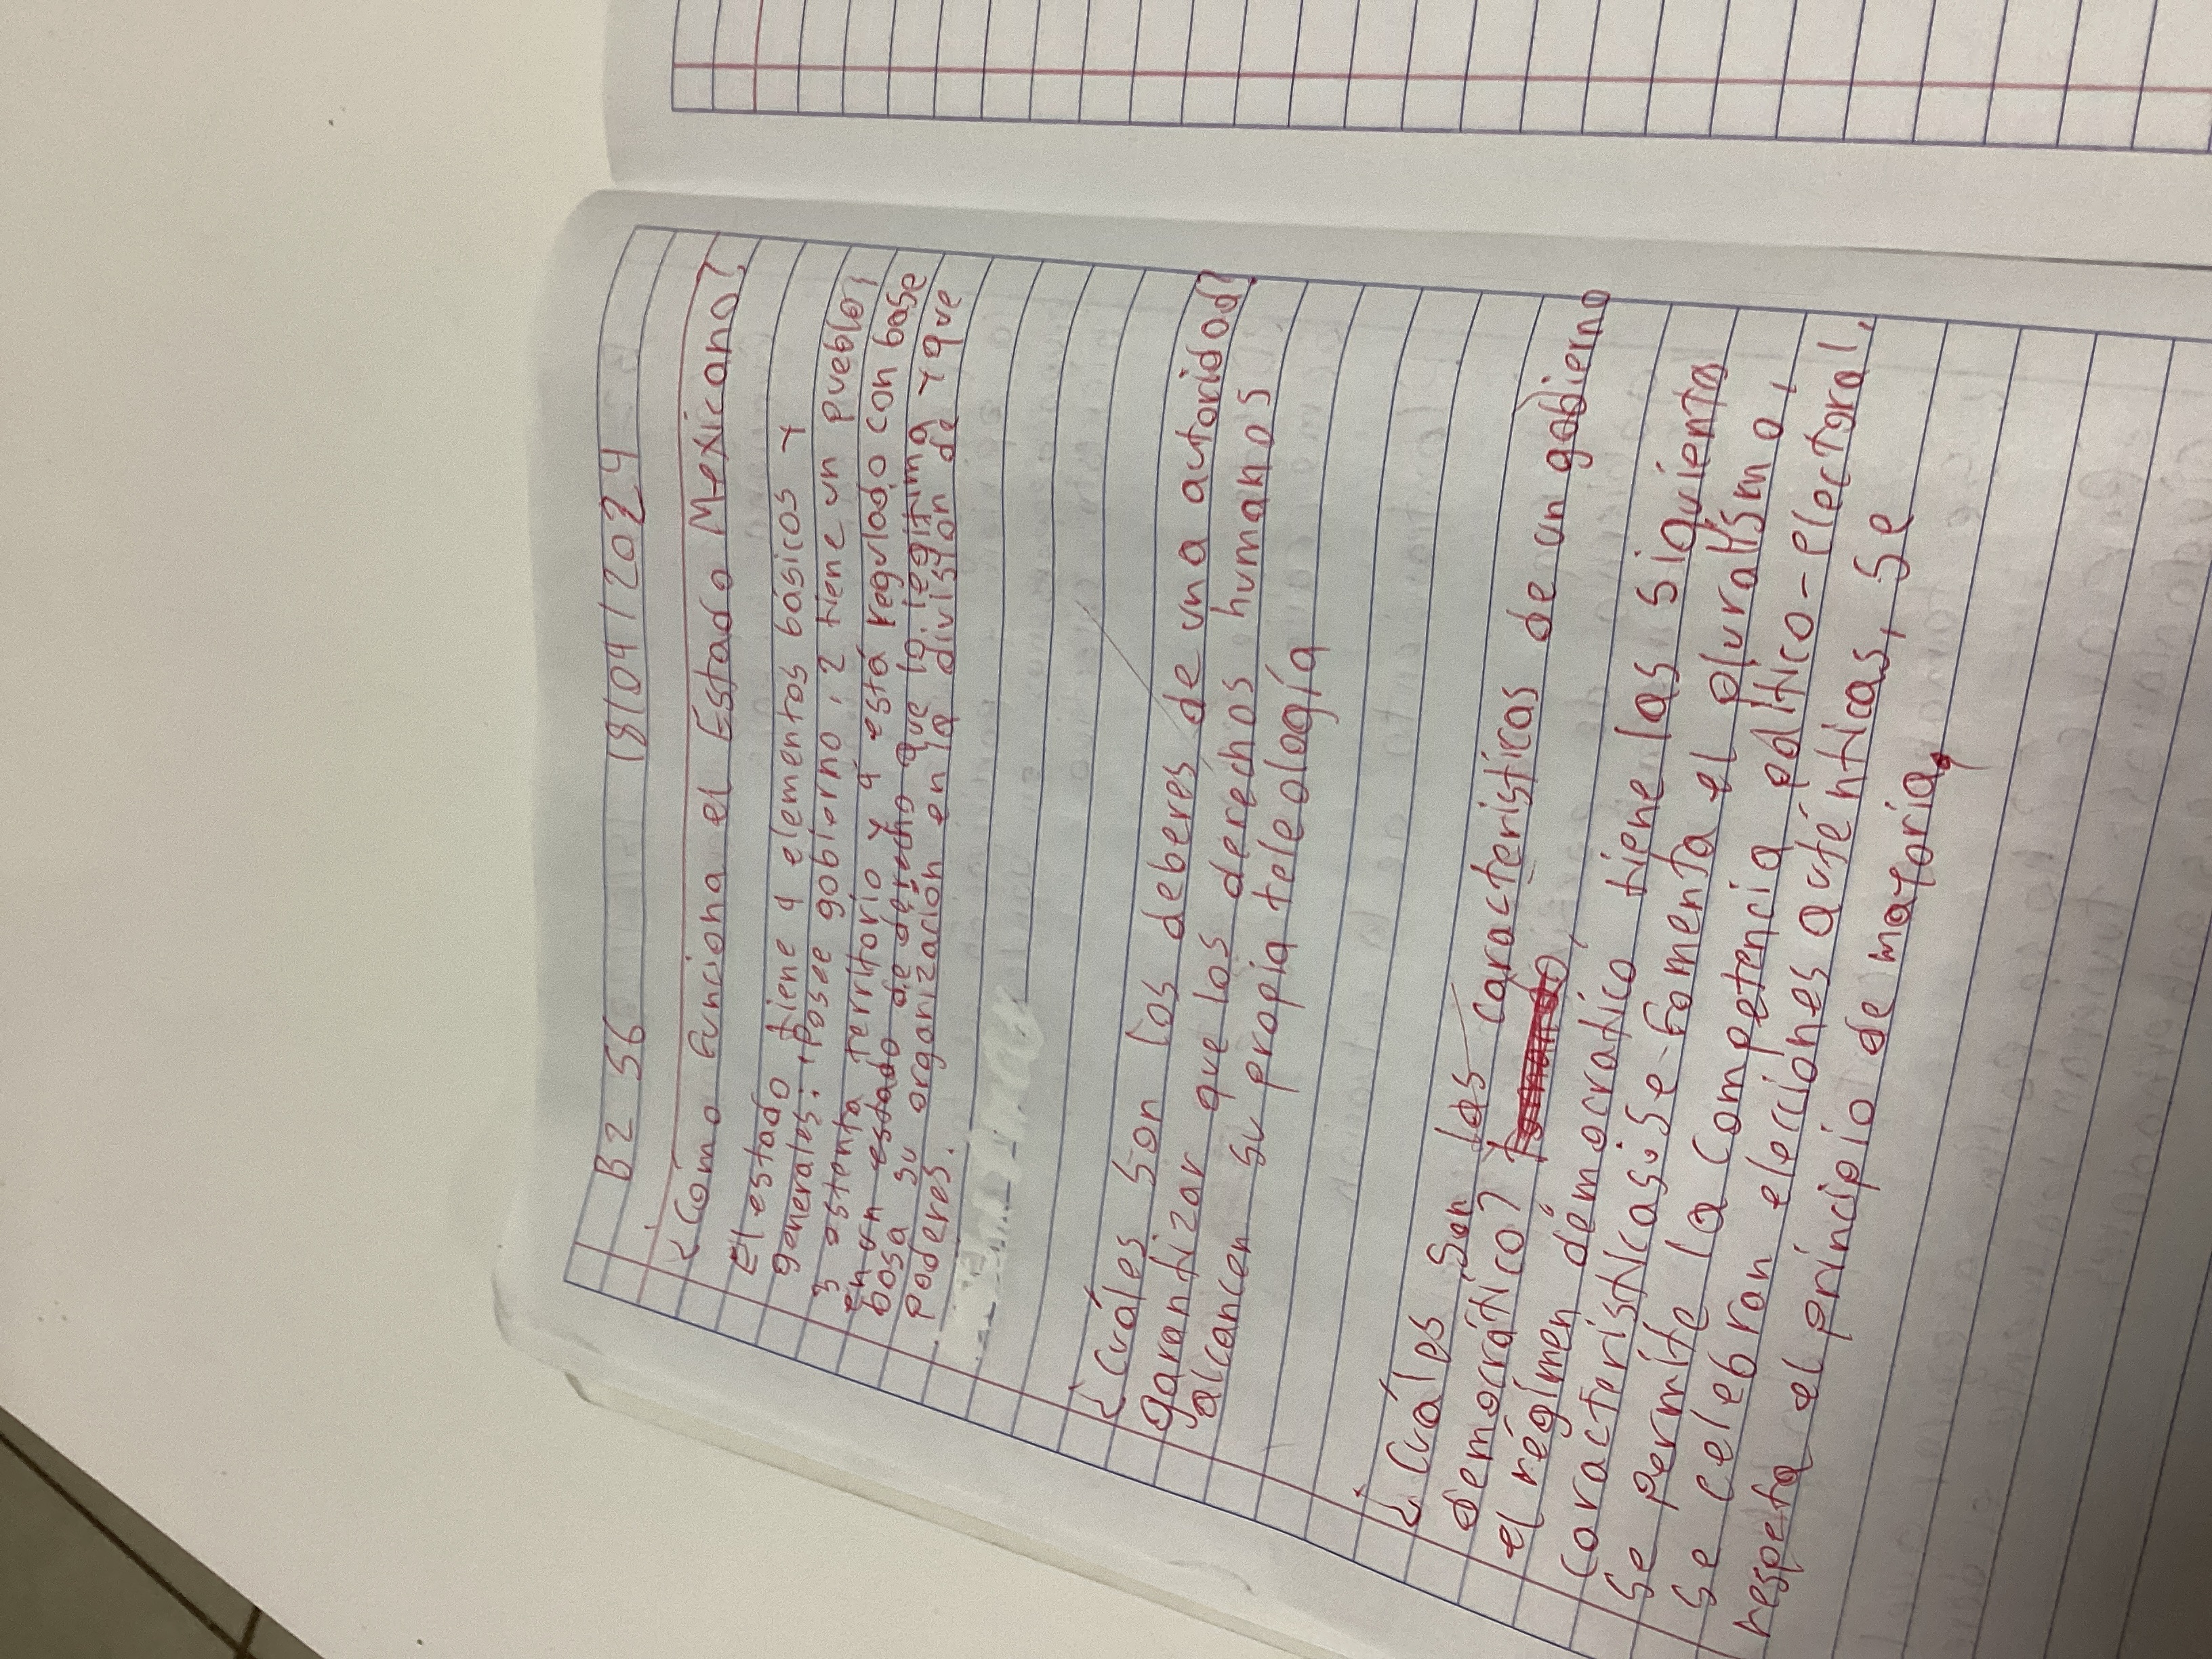 B2 S6 18/04/2024
¿Cómo funciona el Estado Mexicano?
El estado tiene 4 elementos básicos y
generales: 1 Posee gobierno, 2 tiene un pueblo,
3 ostenta territorio y 4 está regulado con base
en un estado de derecho que lo legitima y que
basa su organización en la división de
poderes.
¿Cuáles son los deberes de una autoridad?
garantizar que los derechos humanos
alcancen su propia teleología
¿Cuáles son las características de un gobierno
democrático?
el régimen démocratico tiene las siguientes
características: Se fomenta el pluralismo,
se permite la competencia político-electoral,
se celebran elecciones auténticas, se
respeta el principio de mayoria,